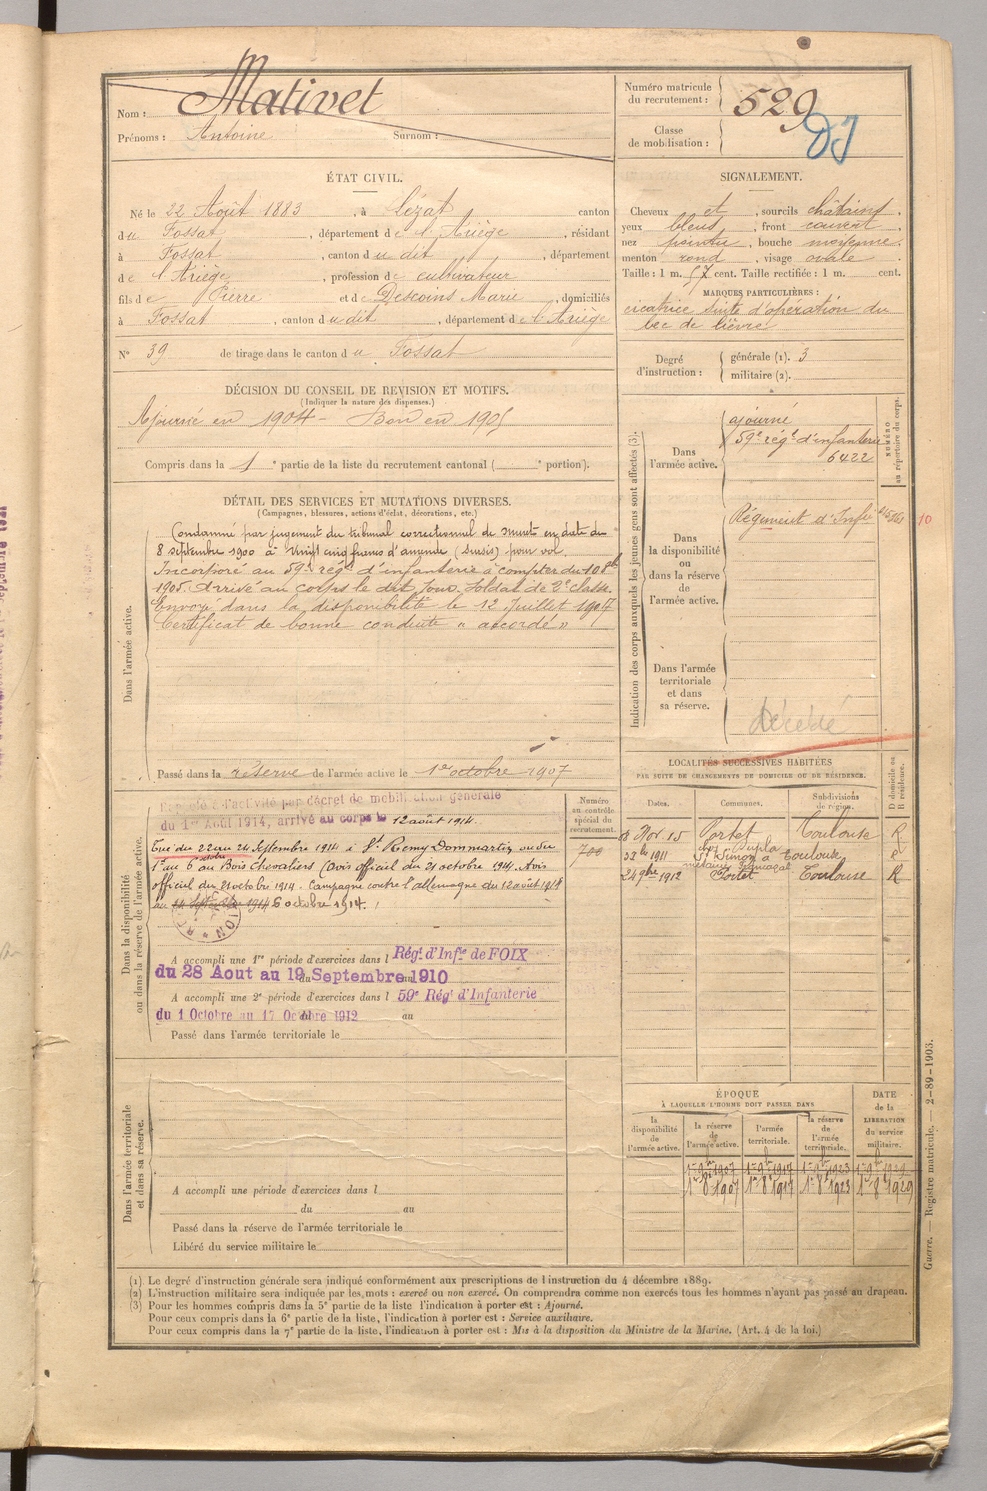 Nom : Mativet
Prénoms : Antoine Surnom :
Numéro matricule du recrutement : 529
Classe de mobilisation :
ÉTAT CIVIL.
Né le 22 Août 1883, à Lézat canton
du Fossat, département de l'Ariège, résidant
à Fossat, canton du dit, département
de l'Ariège, profession de cultivateur
fils de Pierre et de Descoins Marie, domiciliés
à Fossat, canton du dit, département de l'Ariège
N° 39 de tirage dans le canton du Fossat
SIGNALEMENT.
Cheveux et, sourcils châtains,
yeux bleus, front couvert,
nez pointu, bouche moyenne,
menton rond, visage ovale.
Taille : 1 m. 57 cent. Taille rectifiée : 1 m. cent.
MARQUES PARTICULIÈRES :
cicatrice suite d'opération du
bec de lièvre
Degré d'instruction : générale (1). 3
militaire (2).
DÉCISION DU CONSEIL DE REVISION ET MOTIFS.
(Indiquer la nature des dispenses.)
Ajourné en 1904 - Bon en 1905
Compris dans la 1e partie de la liste du recrutement cantonal ( e portion).
DÉTAIL DES SERVICES ET MUTATIONS DIVERSES.
(Campagnes, blessures, actions d'éclat, décorations, etc.)
Dans l'armée active.
Condamné par jugement du tribunal correctionnel de Muret en date du
8 septembre 1900 à vingt cinq francs d'amende (sursis) pour vol.
Incorporé au 59e régt d'infanterie à compter du 10 8bre
1905. Arrivé au corps le dit jour. Soldat de 2e classe.
Envoyé dans la disponibilité le 12 Juillet 1907
Certificat de bonne conduite « accordé »
Passé dans la réserve de l'armée active le 1er octobre 1907
Indication des corps auxquels les jeunes gens sont affectés (3).
NUMÉRO au répertoire du corps.
Dans l'armée active.
ajourné
59e régt d'infanterie
6422
Dans la disponibilité ou dans la réserve de l'armée active.
Régiment d'Infie
10
Dans l'armée territoriale et dans sa réserve.
Décédé
LOCALITÉS SUCCESSIVES HABITÉES
PAR SUITE DE CHANGEMENTS DE DOMICILE OU DE RÉSIDENCE.
Dates. Communes. Subdivisions de région. D domicile ou R résidence.
Portet Toulouse R
1911 St Simon à Toulouse
24 9bre 1912 Portet Toulouse R
Dans la disponibilité ou dans la réserve de l'armée active.
Numéro au contrôle spécial du recrutement.
700
Rappelé à l'activité par décret de mobilisation générale
du 1er Août 1914, arrivé au corps le 12 août 1914.
Tué du 22 au 24 Septembre 1914 à St Remy Dommartin ou du
1er au 6 octobre au Bois Chevaliers (Avis officiel du 21 octobre 1914. Avis
officiel du 21 octobre 1914. Campagne contre l'allemagne du 12 août 1914
au 24 Septembre 1914 6 octobre 1914.
A accompli une 1re période d'exercices dans l Régt d'Infie de FOIX
du 28 Aout au 19 Septembre 1910
A accompli une 2e période d'exercices dans l 59e Régt d'Infanterie
du 1 Octobre au 17 Octobre 1912 au
Passé dans l'armée territoriale le
ÉPOQUE
À LAQUELLE L'HOMME DOIT PASSER DANS
DATE de la LIBÉRATION du service militaire.
la disponibilité de l'armée active. la réserve de l'armée active. l'armée territoriale. la réserve de l'armée territoriale.
1er 9bre 1907 1er 9bre 1917 1er 9bre 1923 1er 9bre 1929
1er 8 1907 1er 8 1917 1er 8 1923 1er 8 1929
Dans l'armée territoriale et dans sa réserve.
A accompli une période d'exercices dans l
du au
Passé dans la réserve de l'armée territoriale le
Libéré du service militaire le
(1) Le degré d'instruction générale sera indiqué conformément aux prescriptions de l'instruction du 4 décembre 1889.
(2) L'instruction militaire sera indiquée par les mots : exercé ou non exercé. On comprendra comme non exercés tous les hommes n'ayant pas passé au drapeau.
(3) Pour les hommes compris dans la 5e partie de la liste l'indication à porter est : Ajourné.
Pour ceux compris dans la 6e partie de la liste, l'indication à porter est : Service auxiliaire.
Pour ceux compris dans la 7e partie de la liste, l'indication à porter est : Mis à la disposition du Ministre de la Marine. (Art. 4 de la loi.)
Guerre. — Registre matricule. — 2-89-1903.